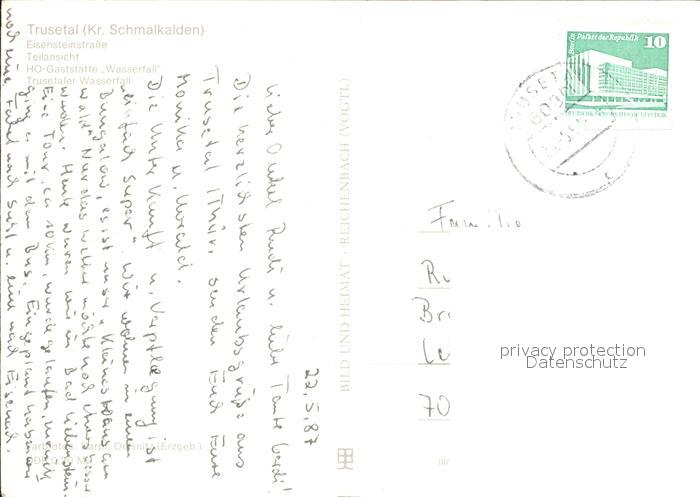 Trusetal (Kr. Schmalkalden)
Eisensteinstraße
Teilansicht
HO-Gaststätte „Wasserfall"
Trusetaler Wasserfall
22.5.87
Liebe Onkel Rudi u. liebe Tante Gerdi!
Die herzlichsten Urlaubsgrüße aus
Trusetal /Thür. senden Euch Eure
Monika u. Harald.
Die Unterkunft u. Verpflegung ist
einfach super". Wir wohnen in einem
Bungalow, es ist unser „Kleines Haus am
Wald". Nur das Wetter möchte noch etwas besser
werden. Heute waren wir in Bad Liebenstein.
Eine Tour, ca 10km, wurde gelaufen, zurück
ging es mit dem Bus. Eingeplant haben wir
noch eine Fahrt nach Suhl u. eine nach Eisenach.
BILD UND HEIMAT · REICHENBACH (VOGTL)
Berlin Palast der Republik
10
DEUTSCHE DEMOKRATISCHE REPUBLIK
TRUSETAL
Familie
Ru
Br
Le
70
privacy protection
Datenschutz